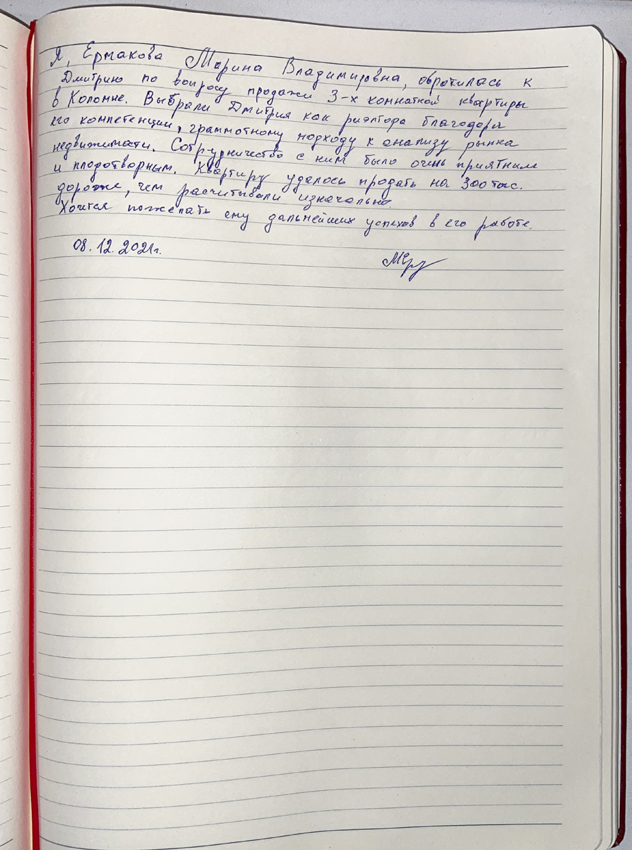 Я, Ермакова Марина Владимировна, обратилась к
Дмитрию по вопросу продажи 3-х комнатной квартиры
в Коломне. Выбрали Дмитрия как риэлтора благодаря
его компетенции, грамотному подходу к анализу рынка
недвижимости. Сотрудничество с ним было очень приятным
и плодотворным. Квартиру удалось продать на 300 тыс.
дороже, чем расчитывали изначально
Хочется пожелать ему дальнейших успехов в его работе.
08.12.2021г.